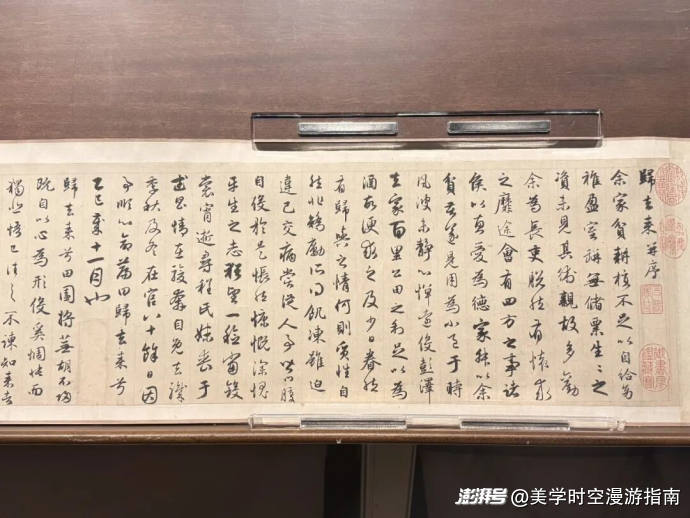 歸去來并序
余家貧耕植不足以自給幼
稚盈室缾無儲粟生生之
資未見其術親故多勸
余為長吏脫然有懷求
之靡途會有四方之事諸
侯以惠愛為德家叔以余
貧苦遂見用為小邑于時
風波未靜心憚遠役彭澤
去家百里公田之利足以為
酒故便求之及少日眷然
有歸與之情何則質性自
然非矯勵所得飢凍雖迫
違己交病嘗從人事皆口腹
自役於是悵然慷慨深愧
平生之志猶望一稔當斂
裳宵逝尋程氏妹喪于
武昌情在駿奔自免去職
季秋及冬在官八十餘日因
事順心命篇曰歸去來兮
乙巳歲十一月也
歸去來兮田園將蕪胡不歸
既自以心為形役奚惆悵而
獨悲悟已往之不諫知來者
澎湃号@美学时空漫游指南